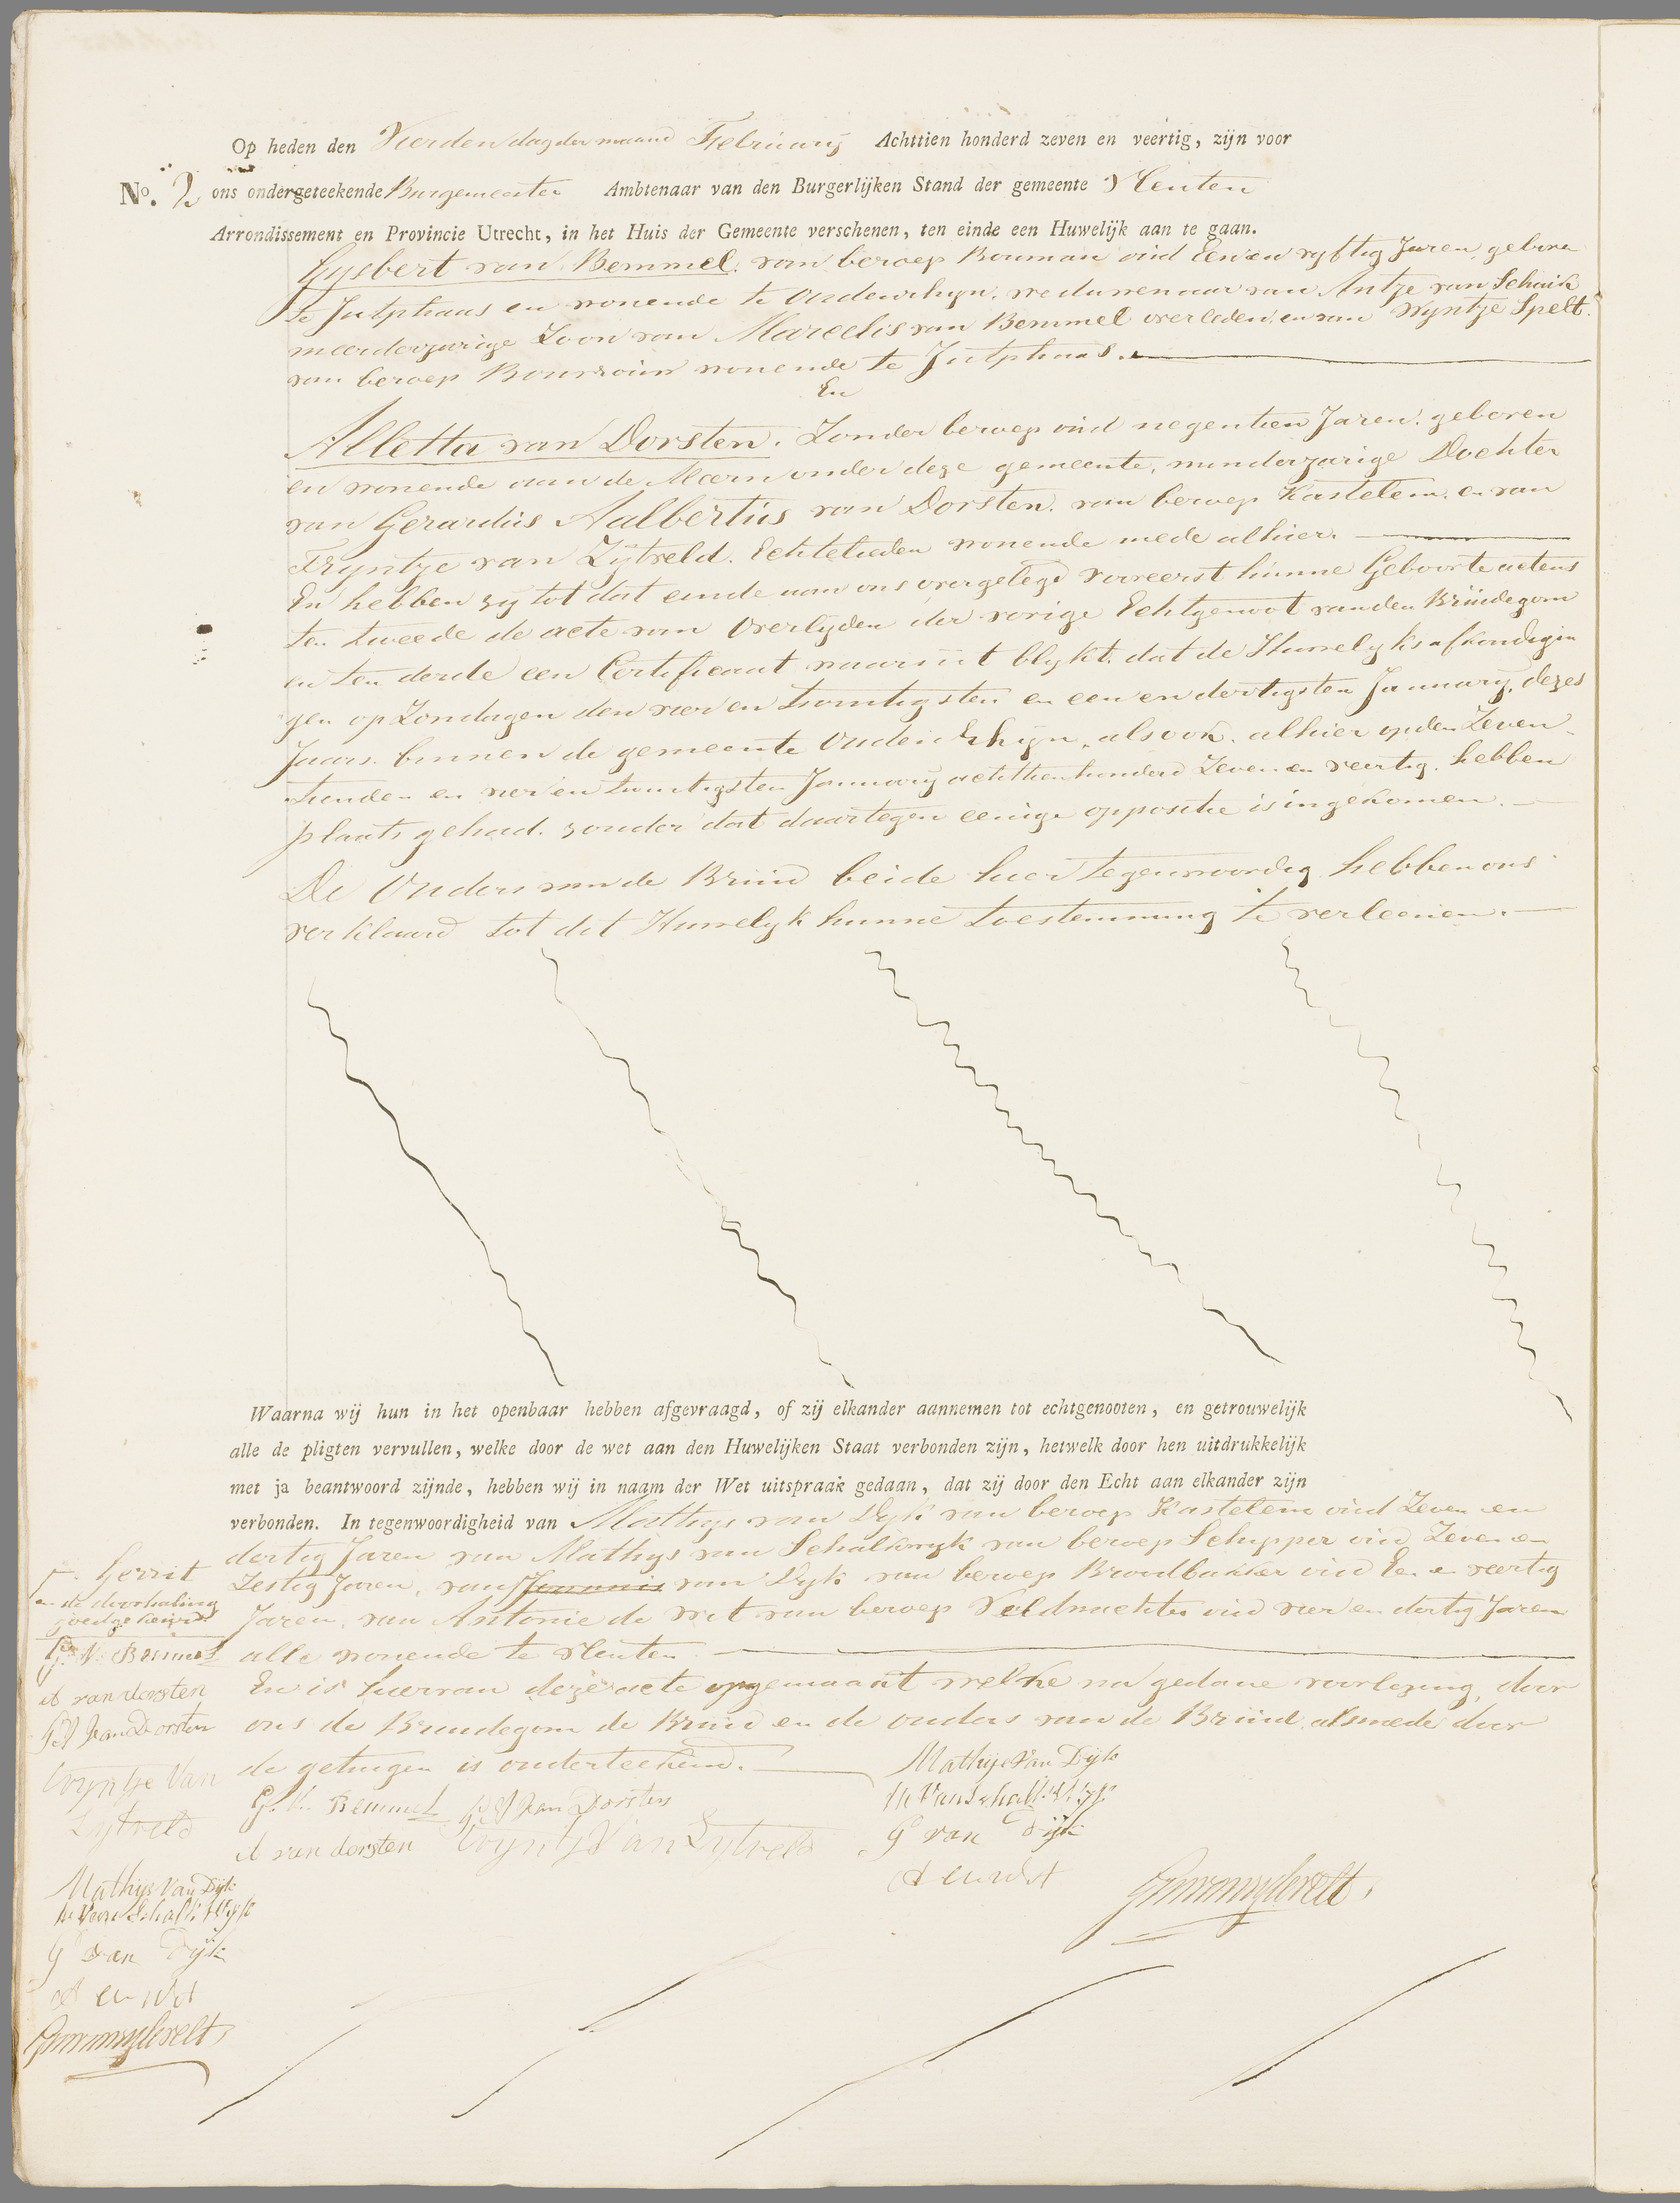 Op heden den Vierden dag der maand February Achttien honderd zeven en veertig, zijn voor
No. 2 ons ondergeteekende Burgemeester Ambtenaar van den Burgerlijken Stand der gemeente Vleuten
Arrondissement en Provincie Utrecht, in het Huis der Gemeente verschenen, ten einde een Huwelijk aan te gaan.
Gysbert van Bemmel. van beroep Bouman oud Een en vyftig Jaren, geboren
te Jutphaas en wonende te Oudenrhyn. weduwenaar van Antje van Schaik
meerderjarige Zoon van Marcelis van Bemmel overleden, en van Wyntje Spelt.
van beroep Bouwvrouw wonende te Jutphaas.
En
Alletta van Dorsten. Zonder beroep oud negentien Jaren. geboren
en wonende aan de Meern onder deze gemeente, minderjarige Dochter
van Gerardus Aalbertus van Dorsten. van beroep Kastelein. en van
Tryntje van Zijtveld. Echtelieden wonende mede alhier.
En hebben zy tot dat einde aan ons overgelegd vooreerst hunne Geboorte actens
ten tweede de acte van Overlyden der vorige Echtgenoot van den Bruidegom
en ten derde een Certificaat waaruit blykt. dat de Huwelyks afkondigin
gen op Zondagen den vier en twintigsten en een en dertigsten January, dezes
Jaars. binnen de gemeente Oudenrhijn, alsook. alhier op den Zeven
tienden en vier en twintigsten January achttienhonderd Zeven en veertig. hebben
plaats gehad. zonder dat daartegen eenige oppositie is ingekomen.
De Ouders van de Bruid beide hier tegenwoordig hebben ons
verklaard tot dit Huwelyk hunne toestemming te verleenen.
Waarna wij hun in het openbaar hebben afgevraagd, of zij elkander aannemen tot echtgenooten, en getrouwelijk
alle de pligten vervullen, welke door de wet aan den Huwelijken Staat verbonden zijn, hetwelk door hen uitdrukkelijk
met ja beantwoord zijnde, hebben wij in naam der Wet uitspraak gedaan, dat zij door den Echt aan elkander zijn
verbonden. In tegenwoordigheid van Mathys van Dyk van beroep Kastelein oud Zeven en
dertig Jaren van Mathys van Schalkwyk van beroep Schipper oud Zeven en
Zestig Jaren, van Johannis van Dyk van beroep Broodbakker oud Een en veertig
Jaren, van Antonie de Wit van beroep Veldwachter oud vier en dertig Jaren
alle wonende te Vleuten
En is hiervan deze acte opgemaakt welke na gedane voorlezing, door
ons de Bruidegom de Bruid en de ouders van de Bruid, alsmede door
de getuigen is onderteekend.
G. V. Bemmel
G A van Dorsten
A van dorsten
Tryntje Van Zytveld
Mathijs Van Dijk
M Van Schalkwyk
G van Dijk
A de Wit
Gerrit
en de doorhaling
goedgekeurd
G. V. Bemmel
A van dorsten
G A van Dorsten
Tryntje Van
Zytveld
Mathijs Van Dijk
M Van Schalkwyk
G van Dijk
A de Wit